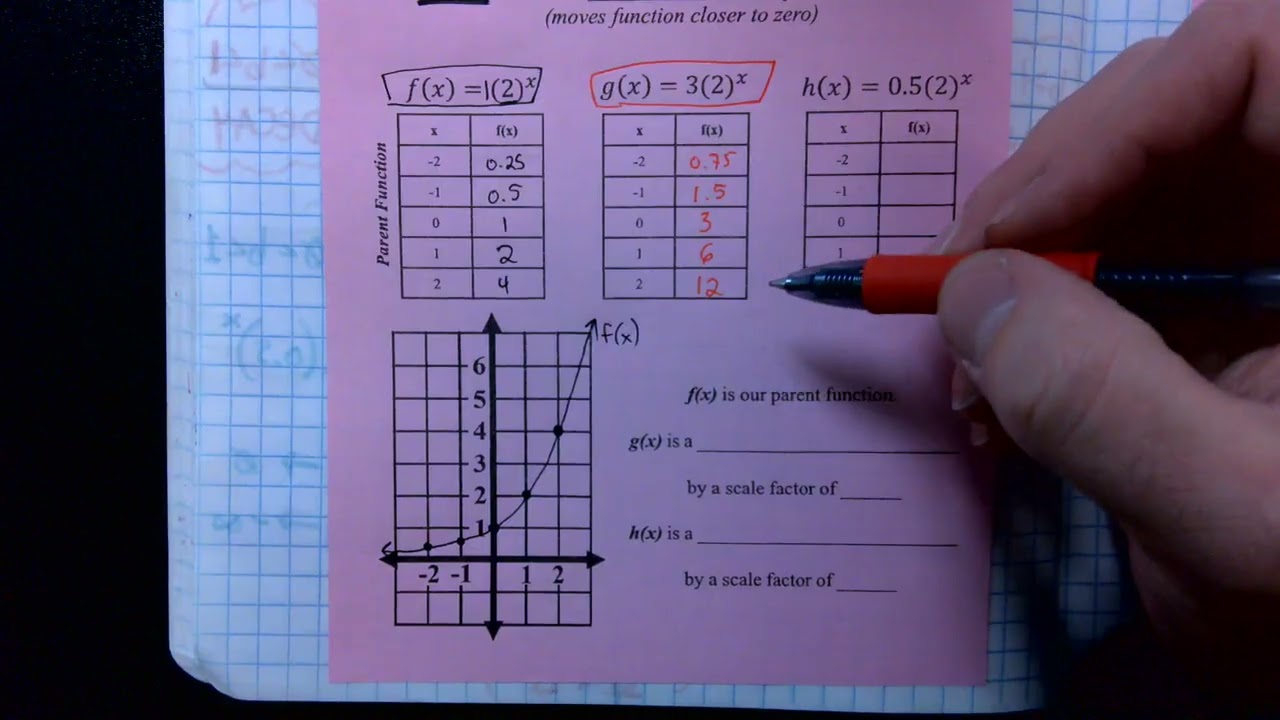 (moves function closer to zero)
f(x) =1(2)ˣ
g(x) = 3(2)ˣ
h(x) = 0.5(2)ˣ
Parent Function
x f(x)
-2 0.25
-1 0.5
0 1
1 2
2 4
x f(x)
-2 0.75
-1 1.5
0 3
1 6
2 12
x f(x)
-2
-1
0
1
f(x)
6
5
4
3
2
1
-2 -1 1 2
f(x) is our parent function.
g(x) is a
by a scale factor of
h(x) is a
by a scale factor of